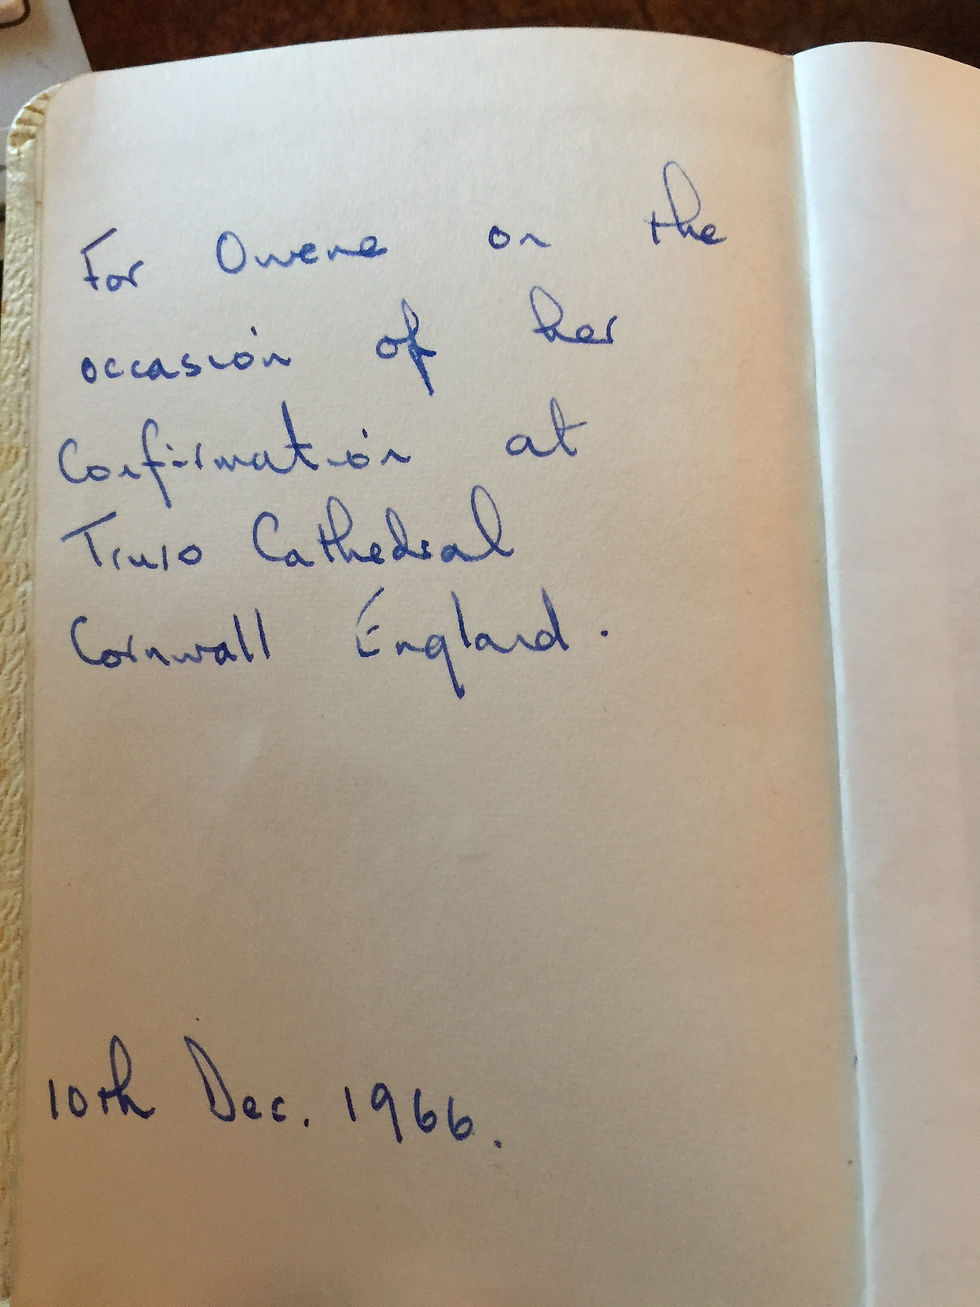 For Owene on the
occasion of her
Confirmation at
Truro Cathedral
Cornwall England.
10th Dec. 1966.